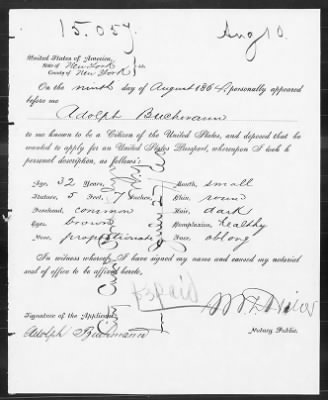 15.057
Aug 10
United States of America,
State of New York
County of New York
On the ninth day of August 1864, personally appeared
before me
Adolph Buchmann
to me known to be a Citizen of the United States, and deposed that he
wanted to apply for an United States Passport, whereupon I took his
personal description, as follows:
Age, 32 Years, Mouth, small
Stature, 5 Feet, 7 Inches, Chin, round
Forehead, common Hair, dark
Eyes, brown Complexion, healthy
Nose, proportionate Face, oblong
In witness whereof, I have signed my name and caused my notarial
seal of office to be affixed hereto.
$3 paid
Signature of the Applicant,
Adolph Buchmann
Notary Public.